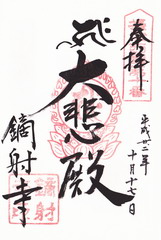 奉拝
平成廿二年
十月十七日
大悲殿
鏑射寺